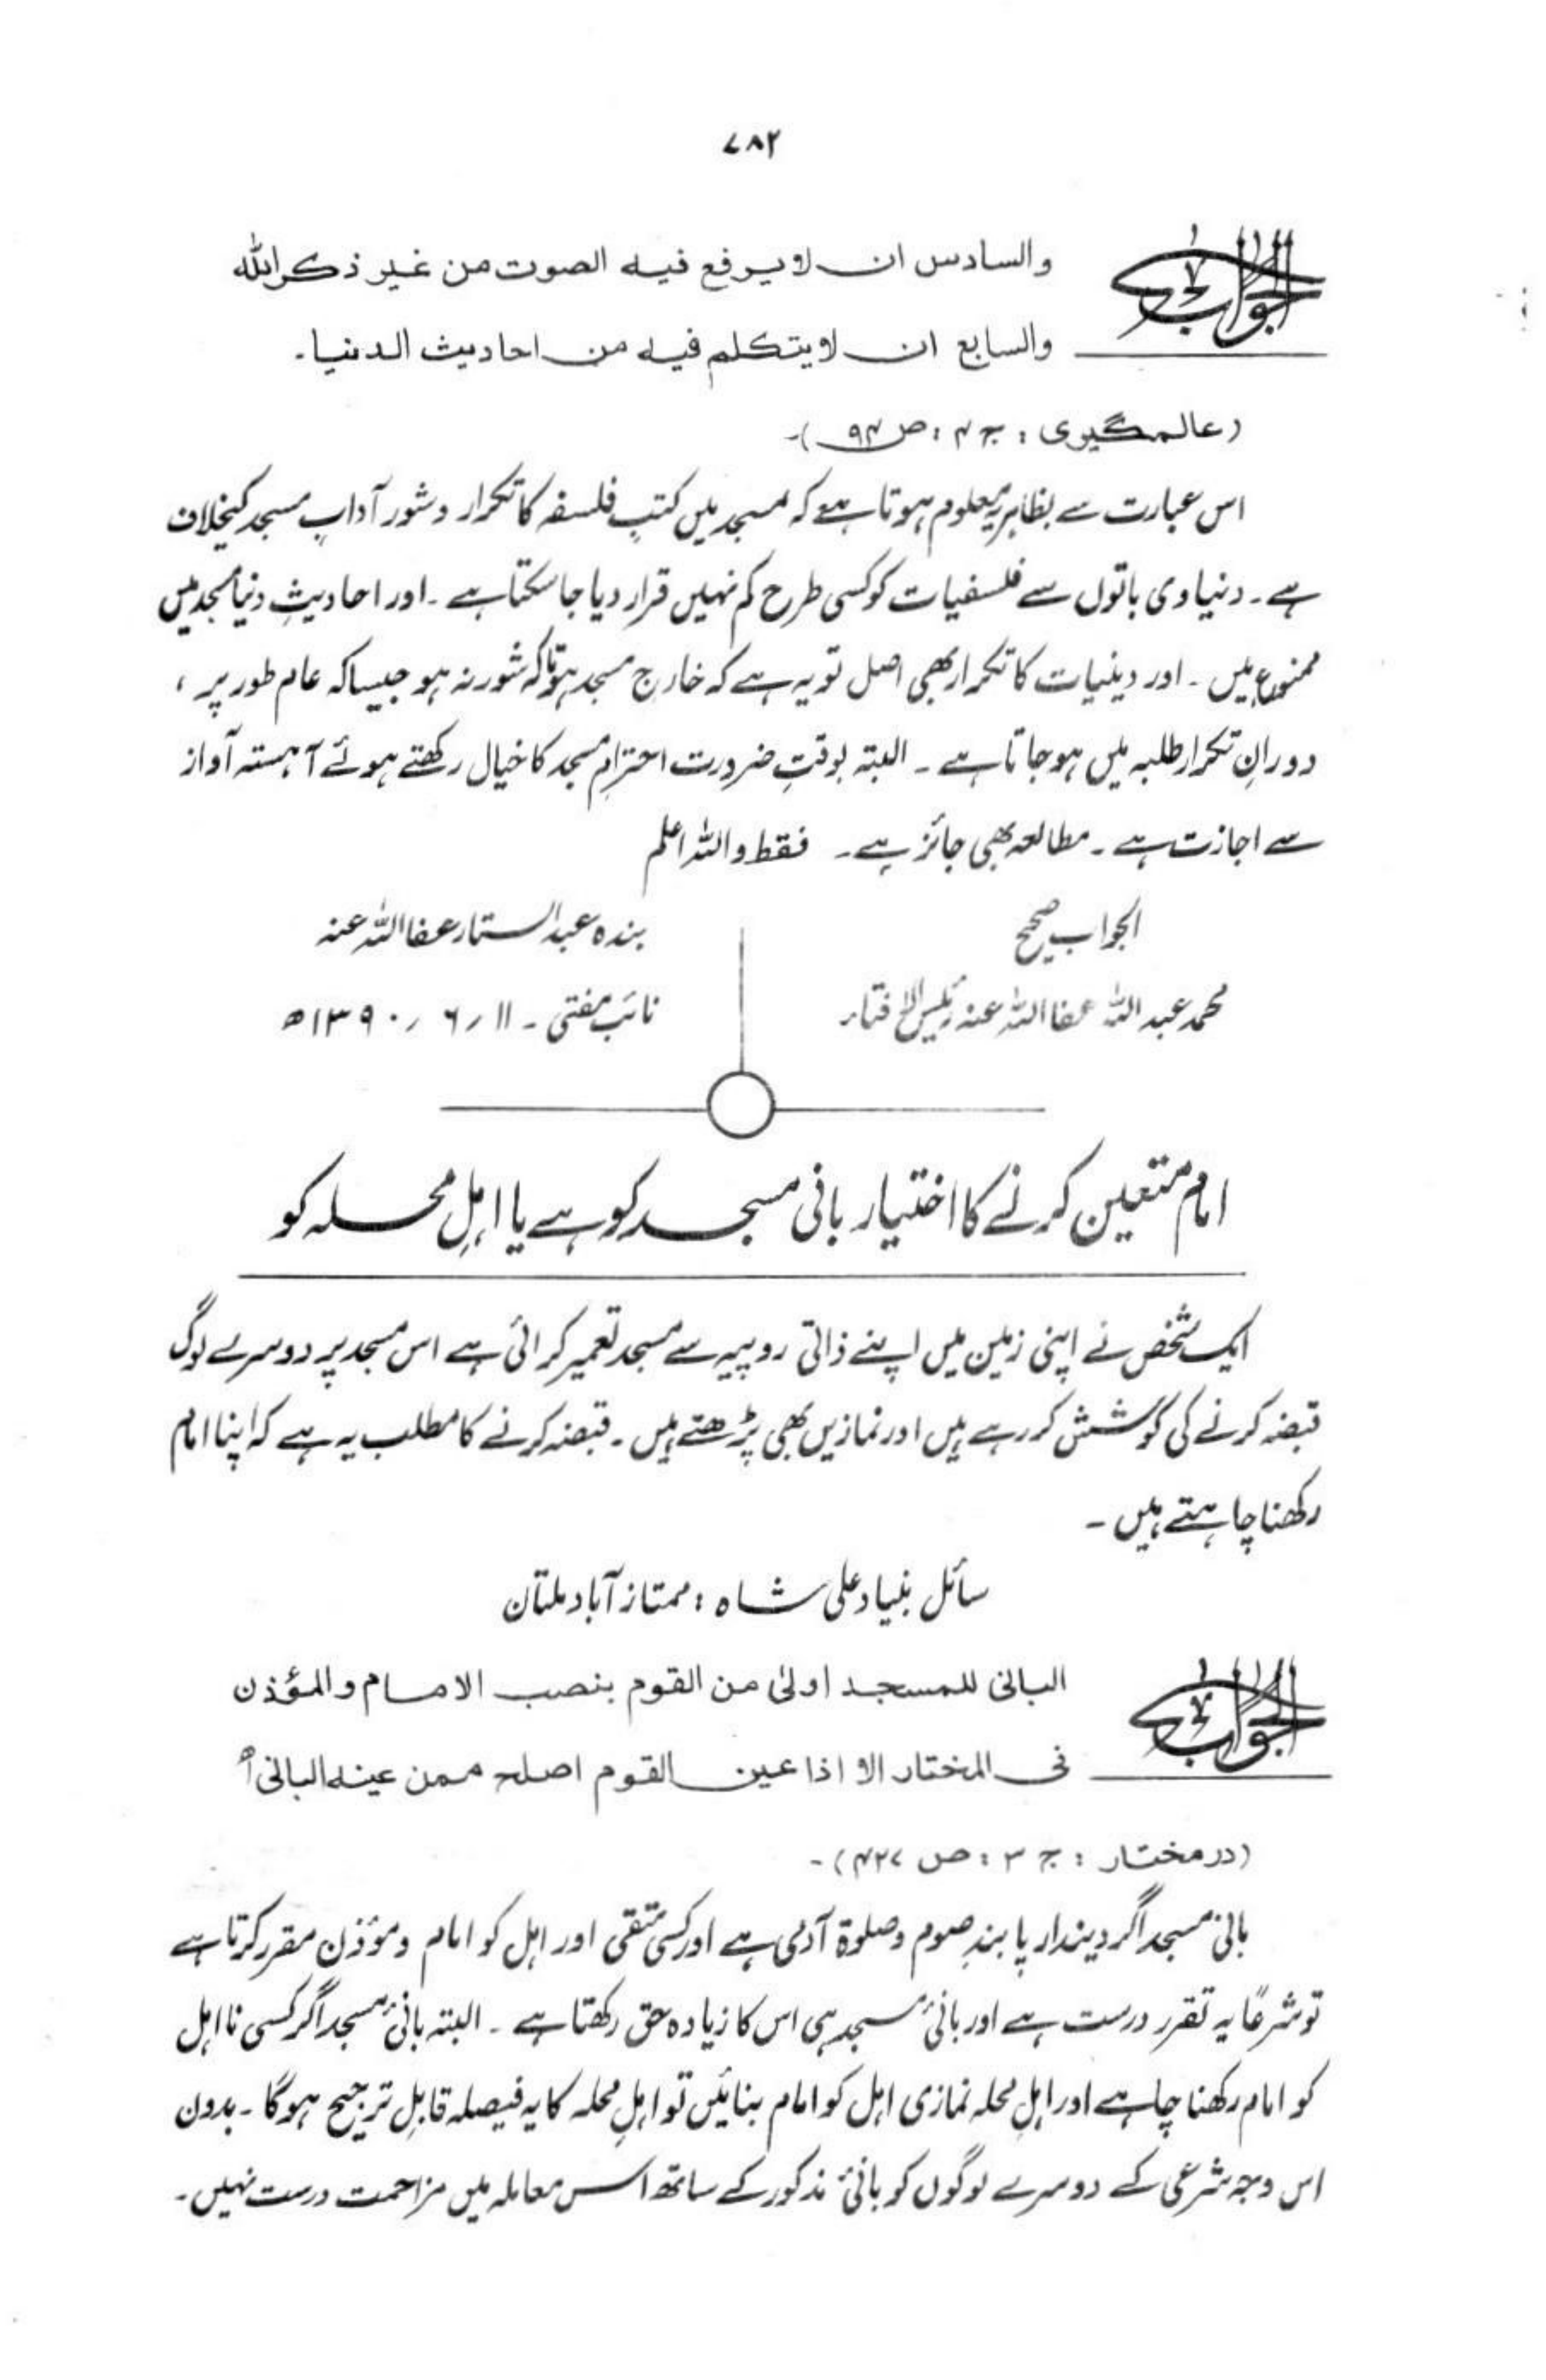 ۷۸۲
الجواب
والسادس ان لا يرفع فيه الصوت من غير ذكر الله
والسابع ان لا يتكلم فيه من احاديث الدنيا۔
(عالمگیری : ج ۴ : ص ۹۴)۔
اس عبارت سے بظاہر یہ معلوم ہوتا ہے کہ مسجد میں کتب فلسفہ کا تکرار و شور آدابِ مسجد کیخلاف
ہے۔ دنیاوی باتوں سے فلسفیات کو کسی طرح کم نہیں قرار دیا جا سکتا ہے۔ اور احادیثِ دنیا مسجد میں
ممنوع ہیں۔ اور دینیات کا تکرار بھی اصل تو یہ ہے کہ خارج مسجد ہو تاکہ شور نہ ہو جیسا کہ عام طور پر،
دورانِ تکرار طلبہ میں ہو جاتا ہے۔ البتہ بوقتِ ضرورت احترامِ مسجد کا خیال رکھتے ہوئے آہستہ آواز
سے اجازت ہے۔ مطالعہ بھی جائز ہے۔ فقط واللہ اعلم
الجواب صحیح
محمد عبد اللہ عفا اللہ عنہ رئیس الافتاء
بندہ عبد الستار عفا اللہ عنہ
نائب مفتی۔ ۱۱ / ۶ / ۱۳۹۰ھ
امام متعین کرنے کا اختیار بانی مسجد کو ہے یا اہلِ محلہ کو
ایک شخص نے اپنی زمین میں اپنے ذاتی روپیہ سے مسجد تعمیر کرائی ہے اس مسجد پر دوسرے لوگ
قبضہ کرنے کی کوشش کر رہے ہیں اور نمازیں بھی پڑھتے ہیں۔ قبضہ کرنے کا مطلب یہ ہے کہ اپنا امام
رکھنا چاہتے ہیں۔
سائل بنیاد علی شاہ : ممتاز آباد ملتان
الجواب
البانى للمسجد اولىٰ من القوم بنصب الامام والمؤذن
فى المختار الا اذا عين القوم اصلح ممن عينه البانى اھ
(در مختار : ج ۳ : ص ۴۲۷)۔
بانی مسجد اگر دیندار پابندِ صوم و صلوۃ آدمی ہے اور کسی متقی اور اہل کو امام و مؤذن مقرر کرتا ہے
تو شرعًا یہ تقرر درست ہے اور بانیٔ مسجد ہی اس کا زیادہ حق رکھتا ہے۔ البتہ بانیٔ مسجد اگر کسی نا اہل
کو امام رکھنا چاہے اور اہلِ محلہ نمازی اہل کو امام بنائیں تو اہلِ محلہ کا یہ فیصلہ قابلِ ترجیح ہوگا۔ بدون
اس وجہ شرعی کے دوسرے لوگوں کو بانیٔ مذکور کے ساتھ اس معاملہ میں مزاحمت درست نہیں۔